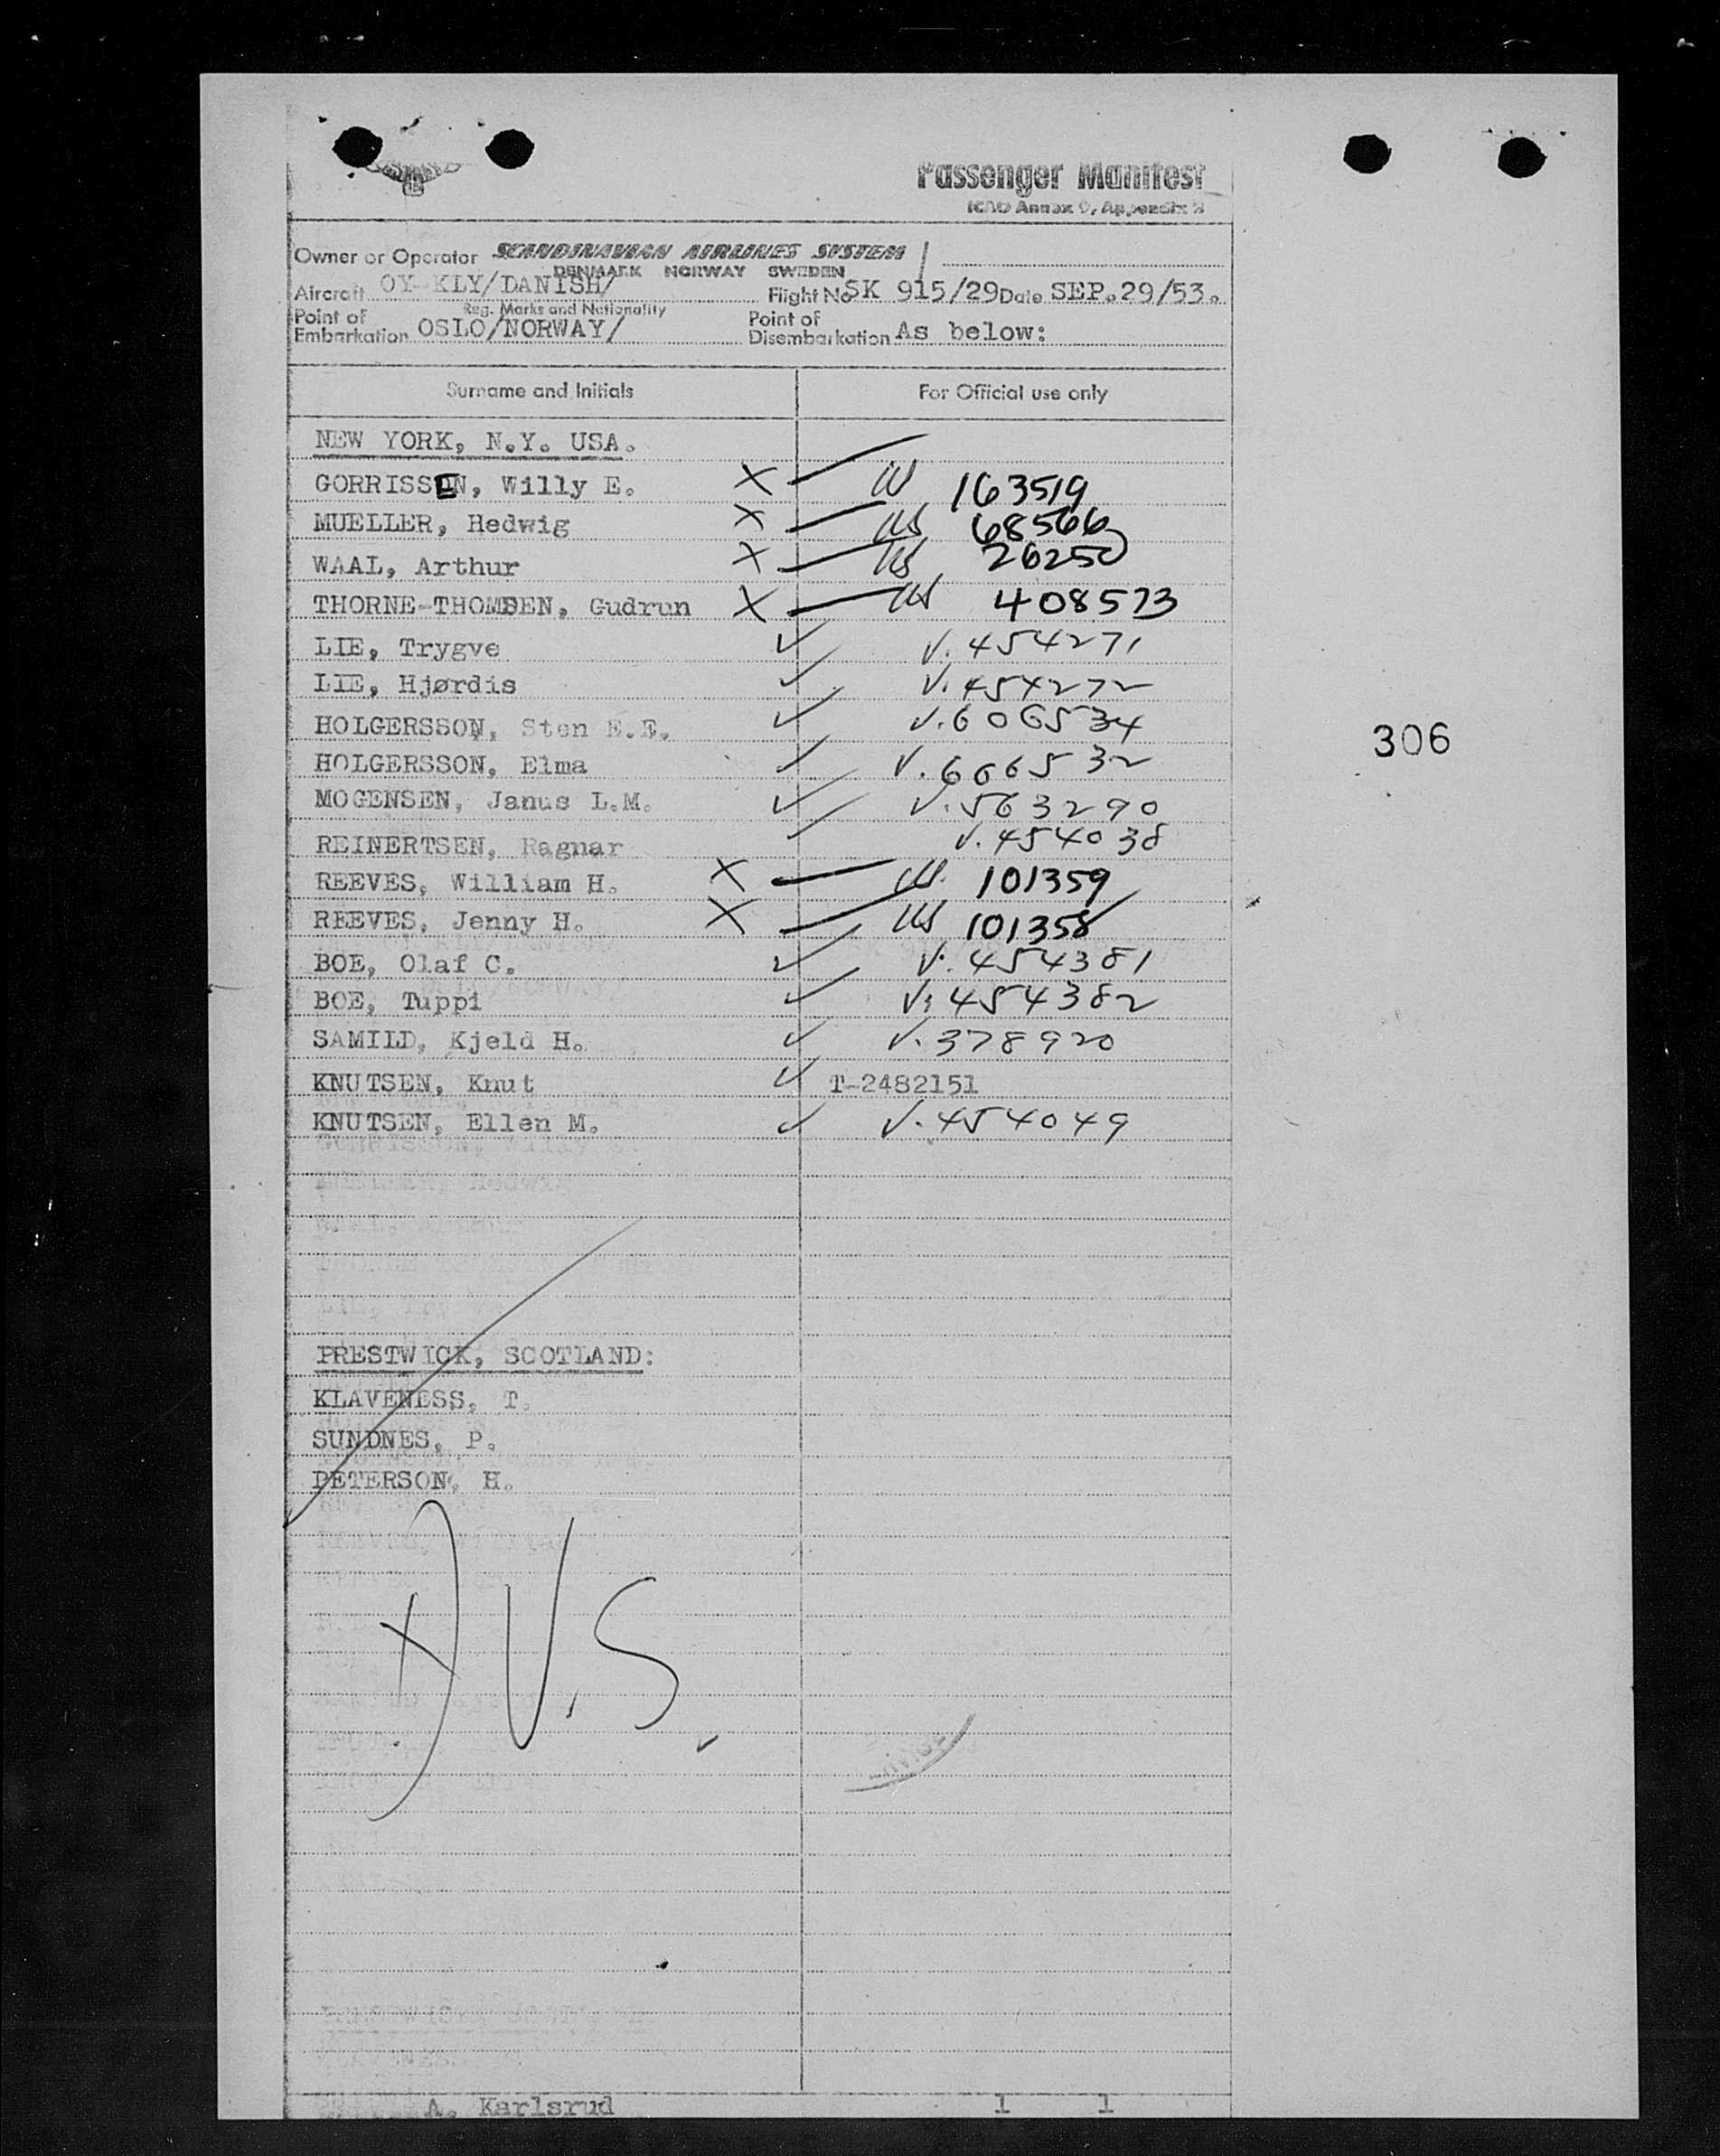 Passenger Manifest
ICAO Annex 9, Appendix 3
Owner or Operator SCANDINAVIAN AIRLINES SYSTEM
DENMARK NORWAY SWEDEN
Aircraft OY-KLY/DANISH/ Flight No SK 915/29 Date SEP.29/53.
Reg. Marks and Nationality
Point of Embarkation OSLO/NORWAY/ Point of Disembarkation As below:
Surname and Initials For Official use only
NEW YORK, N.Y. USA.
GORRISSEN, Willy E. X US 163519
MUELLER, Hedwig X US 68566
WAAL, Arthur X US 26250
THORNE-THOMSEN, Gudrun X US 408573
LIE, Trygve ✓ V. 454271
LIE, Hjørdis ✓ V. 454272
HOLGERSSON, Sten E.E. ✓ V. 606534
HOLGERSSON, Elma ✓ V. 606532
306
MOGENSEN, Janus L.M. ✓ V. 563290
REINERTSEN, Ragnar ✓ V. 454038
REEVES, William H. X US 101359
REEVES, Jenny H. X US 101358
BOE, Olaf C. ✓ V. 454381
BOE, Tuppi ✓ V. 454382
SAMILD, Kjeld H. ✓ V. 378920
KNUTSEN, Knut ✓ T-2482151
KNUTSEN, Ellen M. ✓ V. 454049
PRESTWICK, SCOTLAND:
KLAVENESS, T.
SUNDNES, P.
PETERSON, H.
V.S.
A. Karlsrud 1 1